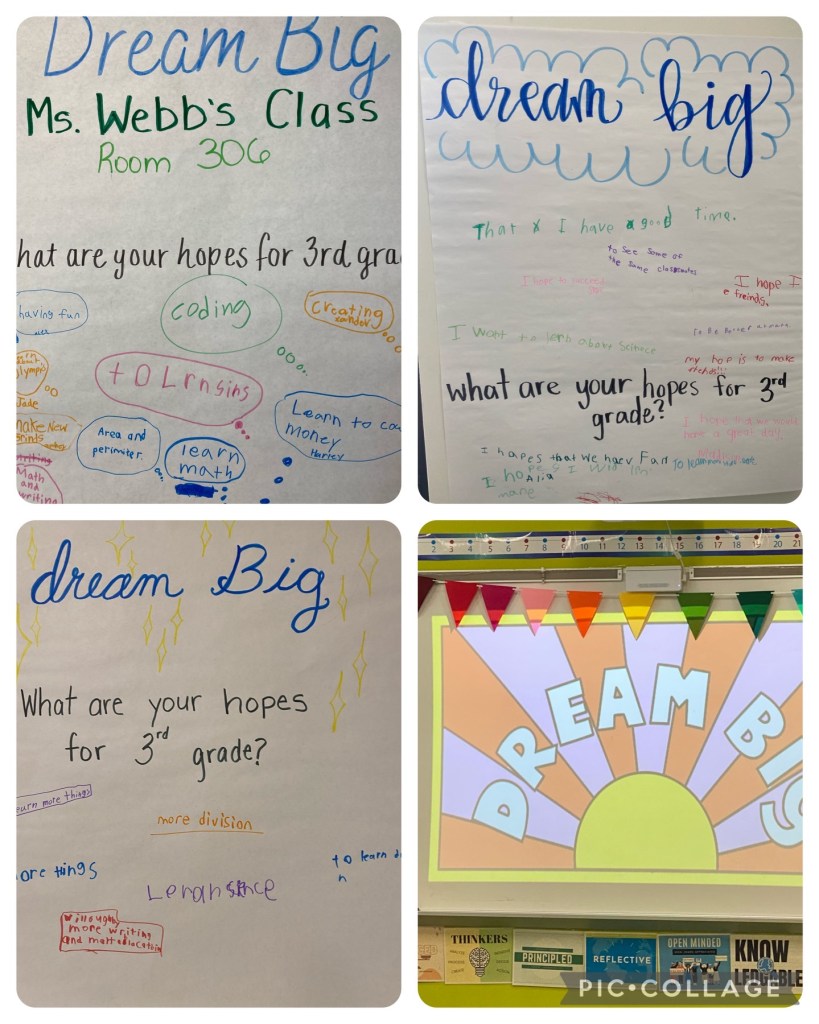 Dream Big
Ms. Webb's Class
Room 306
hat are your hopes for 3rd gra
having fun
coding
creating
xander
olympi
Jade
to Lrn sins
make New
Area and
perimeter.
learn
math
Learn to cou
money
Harley
writing
Math
and
writing
dream big
That I have a good time.
to see some of
the same classmates
I hope I
e freinds.
I Want to lern about Science
my hop is to make
What are your hopes for 3rd
grade?
I hope that we would
have a great day
I hapes that we haev Fun
Alia
dream Big
What are your hopes
for 3rd grade?
earn more things
more division
ore tings
to learn d
n
Leran since
more writing
and
DREAM BIG
2 3 4 5 6 7 8 9 10 11 12 13 14 15 16 17 18 19 20 21
THINKERS
PRINCIPLED
REFLECTIVE
OPEN MINDED
KNOW
LEDGEABLE
PIC•COLLAGE